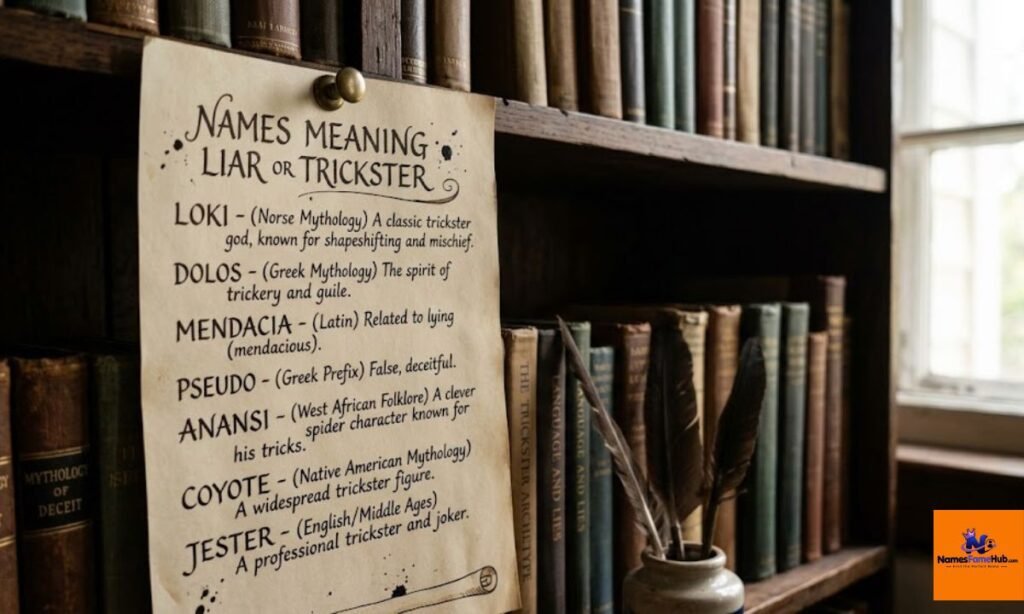 NAMES MEANING
LIAR OR TRICKSTER
LOKI – (Norse Mythology) A classic trickster
god, known for shapeshifting and mischief.
DOLOS – (Greek Mythology) The spirit of
trickery and guile.
MENDACIA – (Latin) Related to lying
(mendacious).
PSEUDO – (Greek Prefix) False, deceitful.
ANANSI – (West African Folklore) A clever
spider character known for
his tricks.
COYOTE – (Native American Mythology)
A widespread trickster figure.
JESTER – (English/Middle Ages)
A professional trickster and joker.
MYTHOLOGY
OF
DECEIT
THE TRICKSTER ARCHETYPE
LANGUAGE AND LIES
NamesFameHub.com